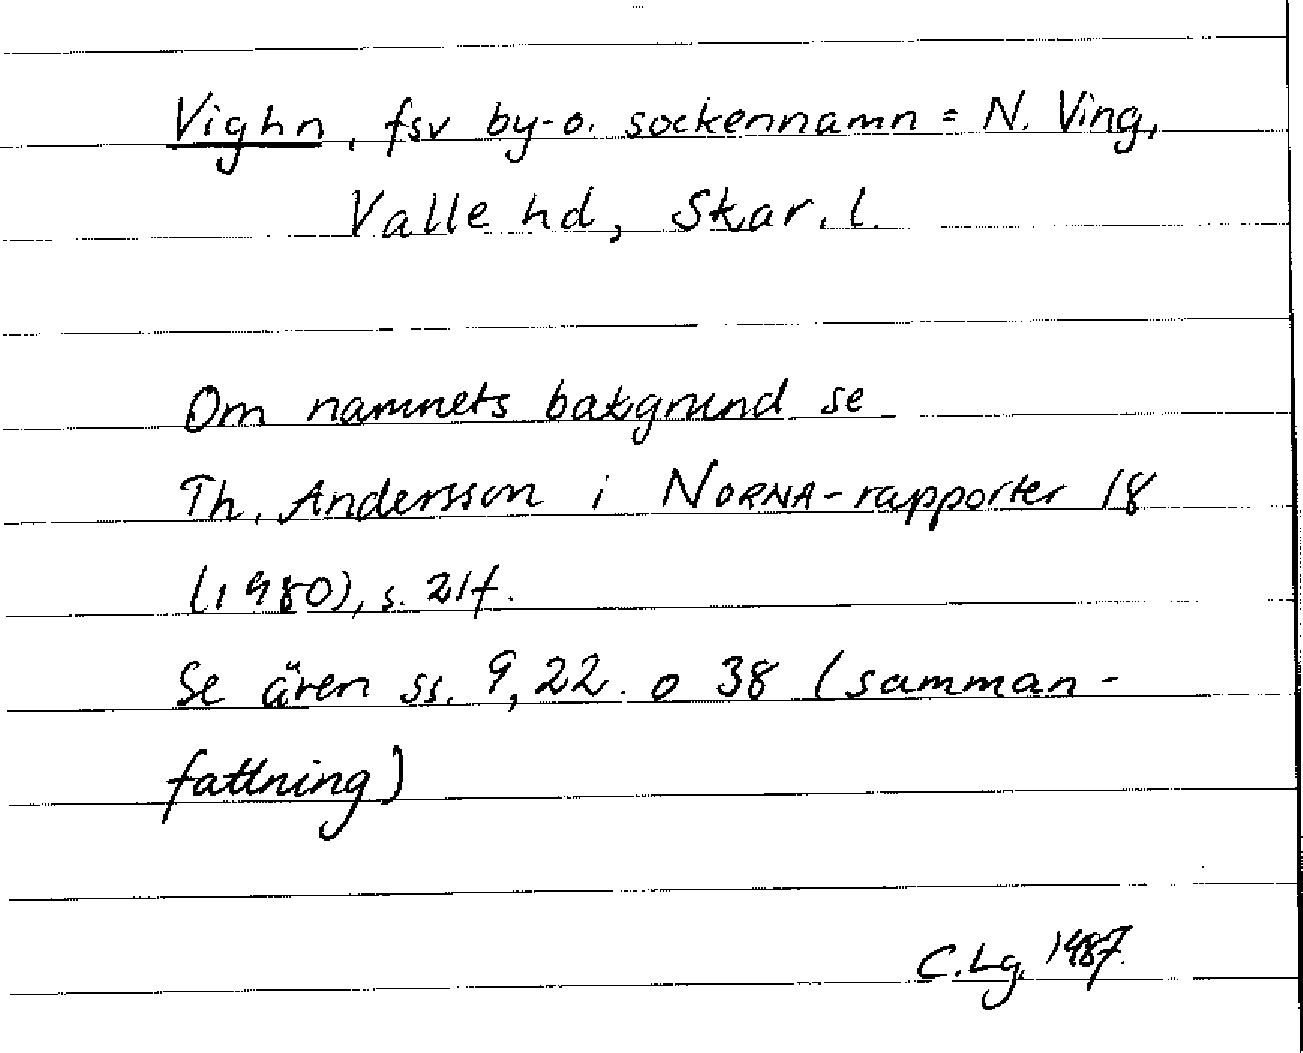 Vighn, fsv by-o. sockennamn = N. Ving,
Valle hd, Skar. l.
Om namnets bakgrund se
Th. Andersson i NORNA-rapporter 18
(1980), s. 21f.
Se även ss. 9, 22. o 38 (samman-
fattning)
C. Lg. 1987.